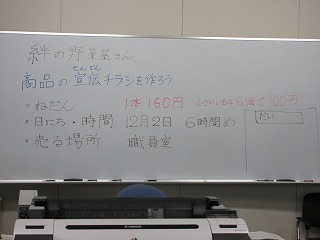 絆の野菜屋さん
せんでん
商品の宣伝チラシを作ろう
・ねだん 1本150円 小さいものは6個で100円
・日にち・時間 12月2日 6時間め
・売る場所 職員室
だい
Canon